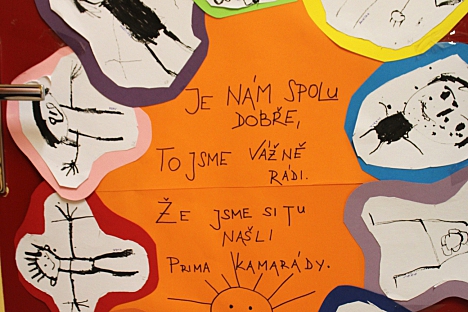 JE NÁM SPOLU
DOBŘE,
TO JSME VÁŽNĚ
RÁDI.
ŽE JSME SI TU
NAŠLI
PRIMA KAMARÁDY.